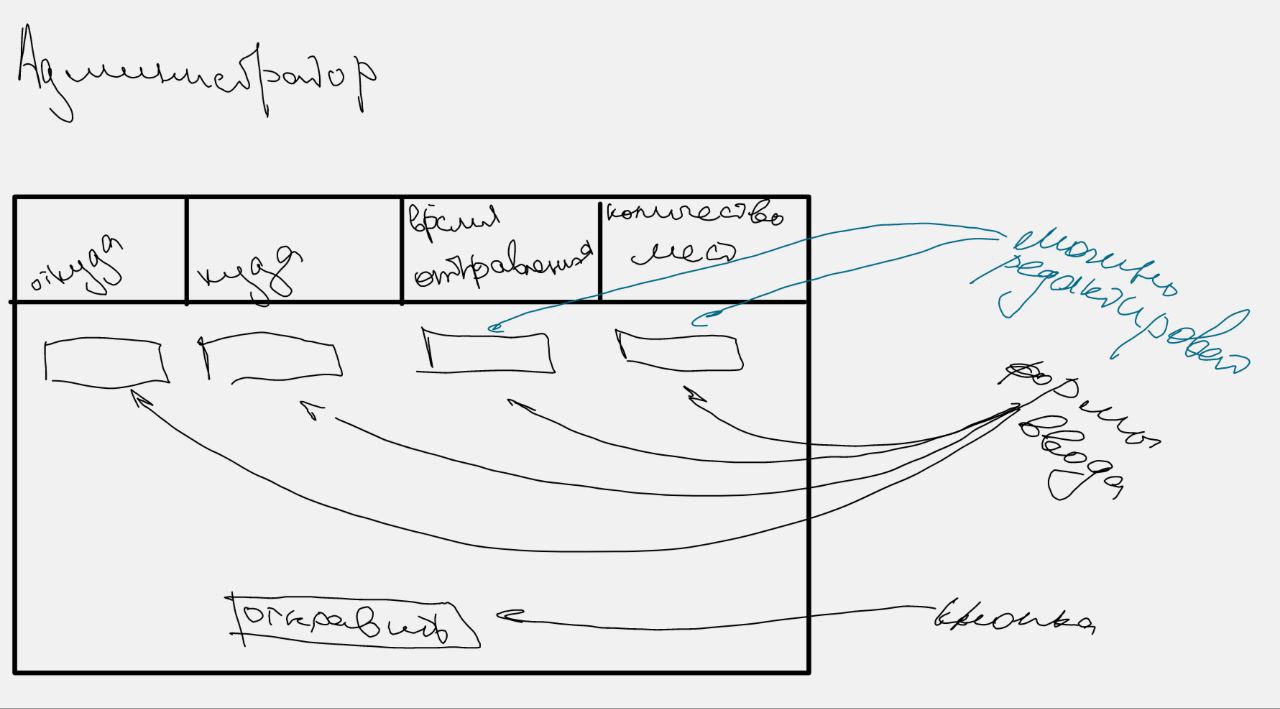 Администратор
откуда
куда
время
отправления
количество
мест
можно
редактировать
формы
ввода
отправить
кнопка